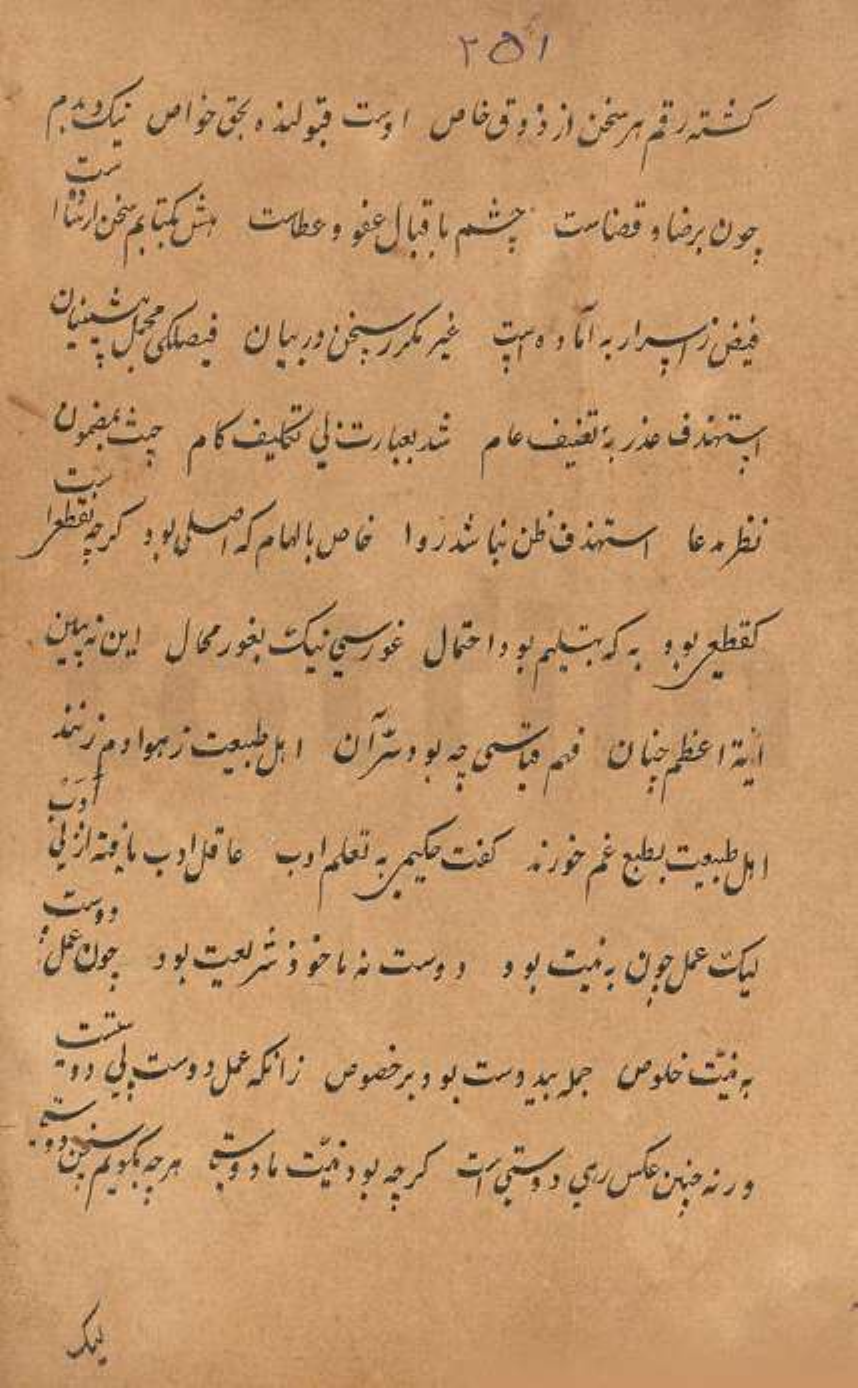 ۲۵۱
کشته رقم هر سخن از ذوق خاص اوست قبولنده بحق خواص نیک و بدم
چون برضا و قضاست چشم باقبال عفو و عطاست سخن ارشد است
فیض ز اسرار به آماده است غیر مکرر سخن در بیان پیشینیان
استهدف عذر به تعنیف عام شد بعبارت ز لی تکلیف کام بمضمون
نظر مدعا استهدف ظن نباشد روا خاص بالهام که اصلی بود کرچه بقطع است
کقطعی بود به که بتسلیم بود احتمال غور سی نیک بغور محال این نه ببین
آیة اعظم چنان فهم قیاسی چه بود سر آن اهل طبیعت ز هوا دم زنند
اهل طبیعت بطبع غم خورند کفت حکیمی به تعلم ادب عاقل ادب یافته از بی ادب
لیک عمل چون به نیت بود دوست نه ماخوذ شریعت بود چون عمل دوست
به نیت خلوص جمله بید وست بود بر خصوص زانکه عمل دوست پی دوستیست
ورنه چنین عکس ری دوستی است کرچه بود نیت ما دوستی هرچه بکویم سخن دوستی
لیک